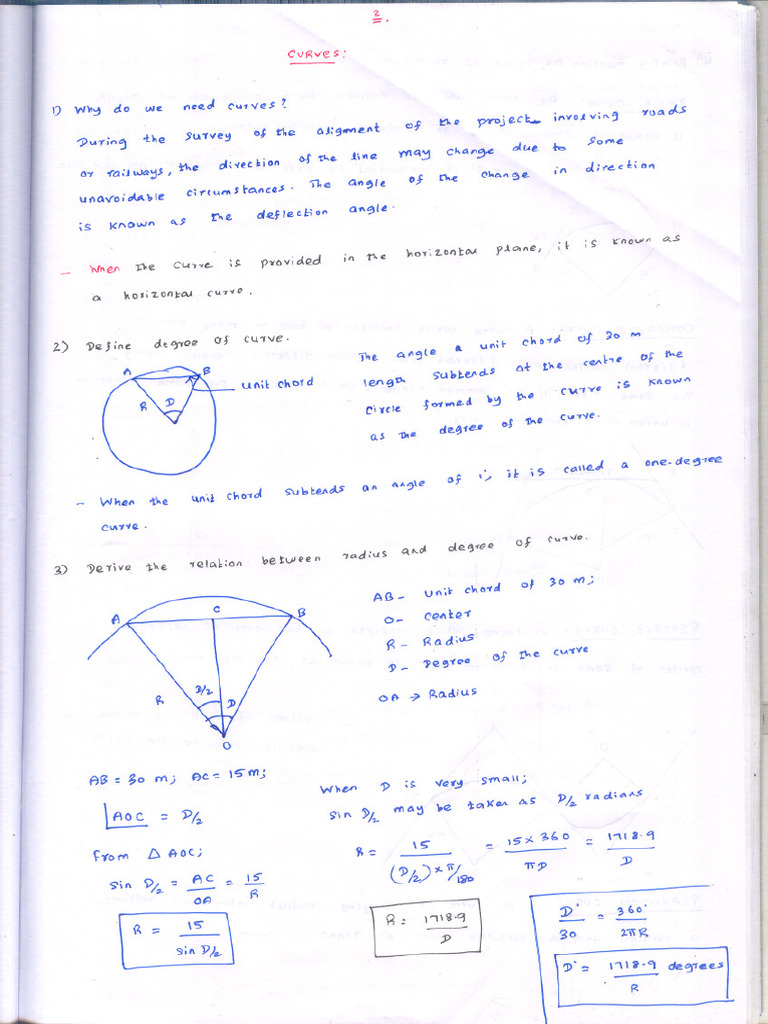 2.
CURVES:
1) Why do we need curves?
During the survey of the aligment of the project involving roads
or railways, the direction of the line may change due to some
unavoidable circumstances. The angle of the change in direction
is known as the deflection angle.
- When the curve is provided in the horizontal plane, it is known as
a horizontal curve.
2) Define degree of curve.
A B
unit chord
R D
The angle a unit chord of 30 m
length subtends at the centre of the
circle formed by the curve is known
as the degree of the curve.
- When the unit chord subtends an angle of 1°, it is called a one-degree
curve.
3) Derive the relation between radius and degree of curve.
A C B
R D/2 D
O
AB - Unit chord of 30 m;
O - Center
R - Radius
D - Degree of the curve
OA → Radius
AB = 30 m; AC = 15 m;
∠AOC = D/2
From △ AOC;
sin D/2 = AC/OA = 15/R
R = 15/sin D/2
When D is very small;
sin D/2 may be taken as D/2 radians
R = 15/((D/2) × π/180) = 15 × 360/πD = 1718.9/D
R = 1718.9/D
D°/30 = 360/2πR
D° = 1718.9/R degrees